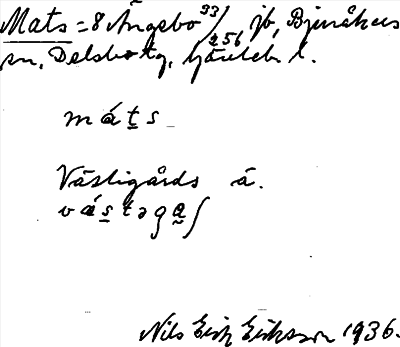 Mats = 8 Ängsbo 33/256 jb, Bjuråkers
sn, Delsbo tg, Gävleb. l.
máts
Västigårds á.
västəgaʃ
Nils Erik Eriksson 1936.